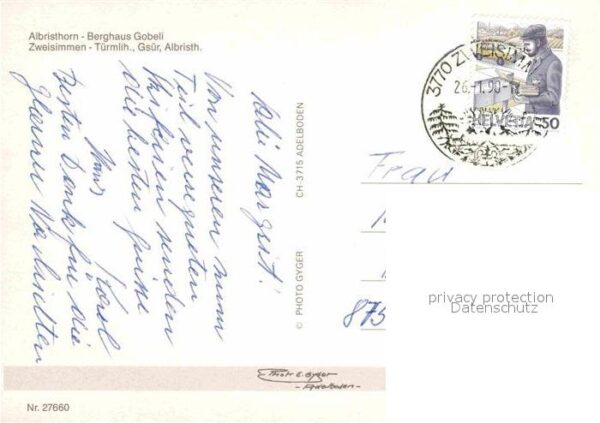 Albristhorn - Berghaus Gobeli
Zweisimmen - Türmlih., Gsür, Albristh.
Liebi Margrit!
Von unseren nun
Teil verregneten
Skiferien senden
die besten Grüsse
Hans
Besten Dank für die
Glarner Nachrichten
© PHOTO GYGER
CH-3715 ADELBODEN
3770 ZWEISIMMEN
26.-1.90-18
HELVETIA 50
Frau
875
privacy protection
Datenschutz
Photo E. Gyger
-Adelboden-
Nr. 27660